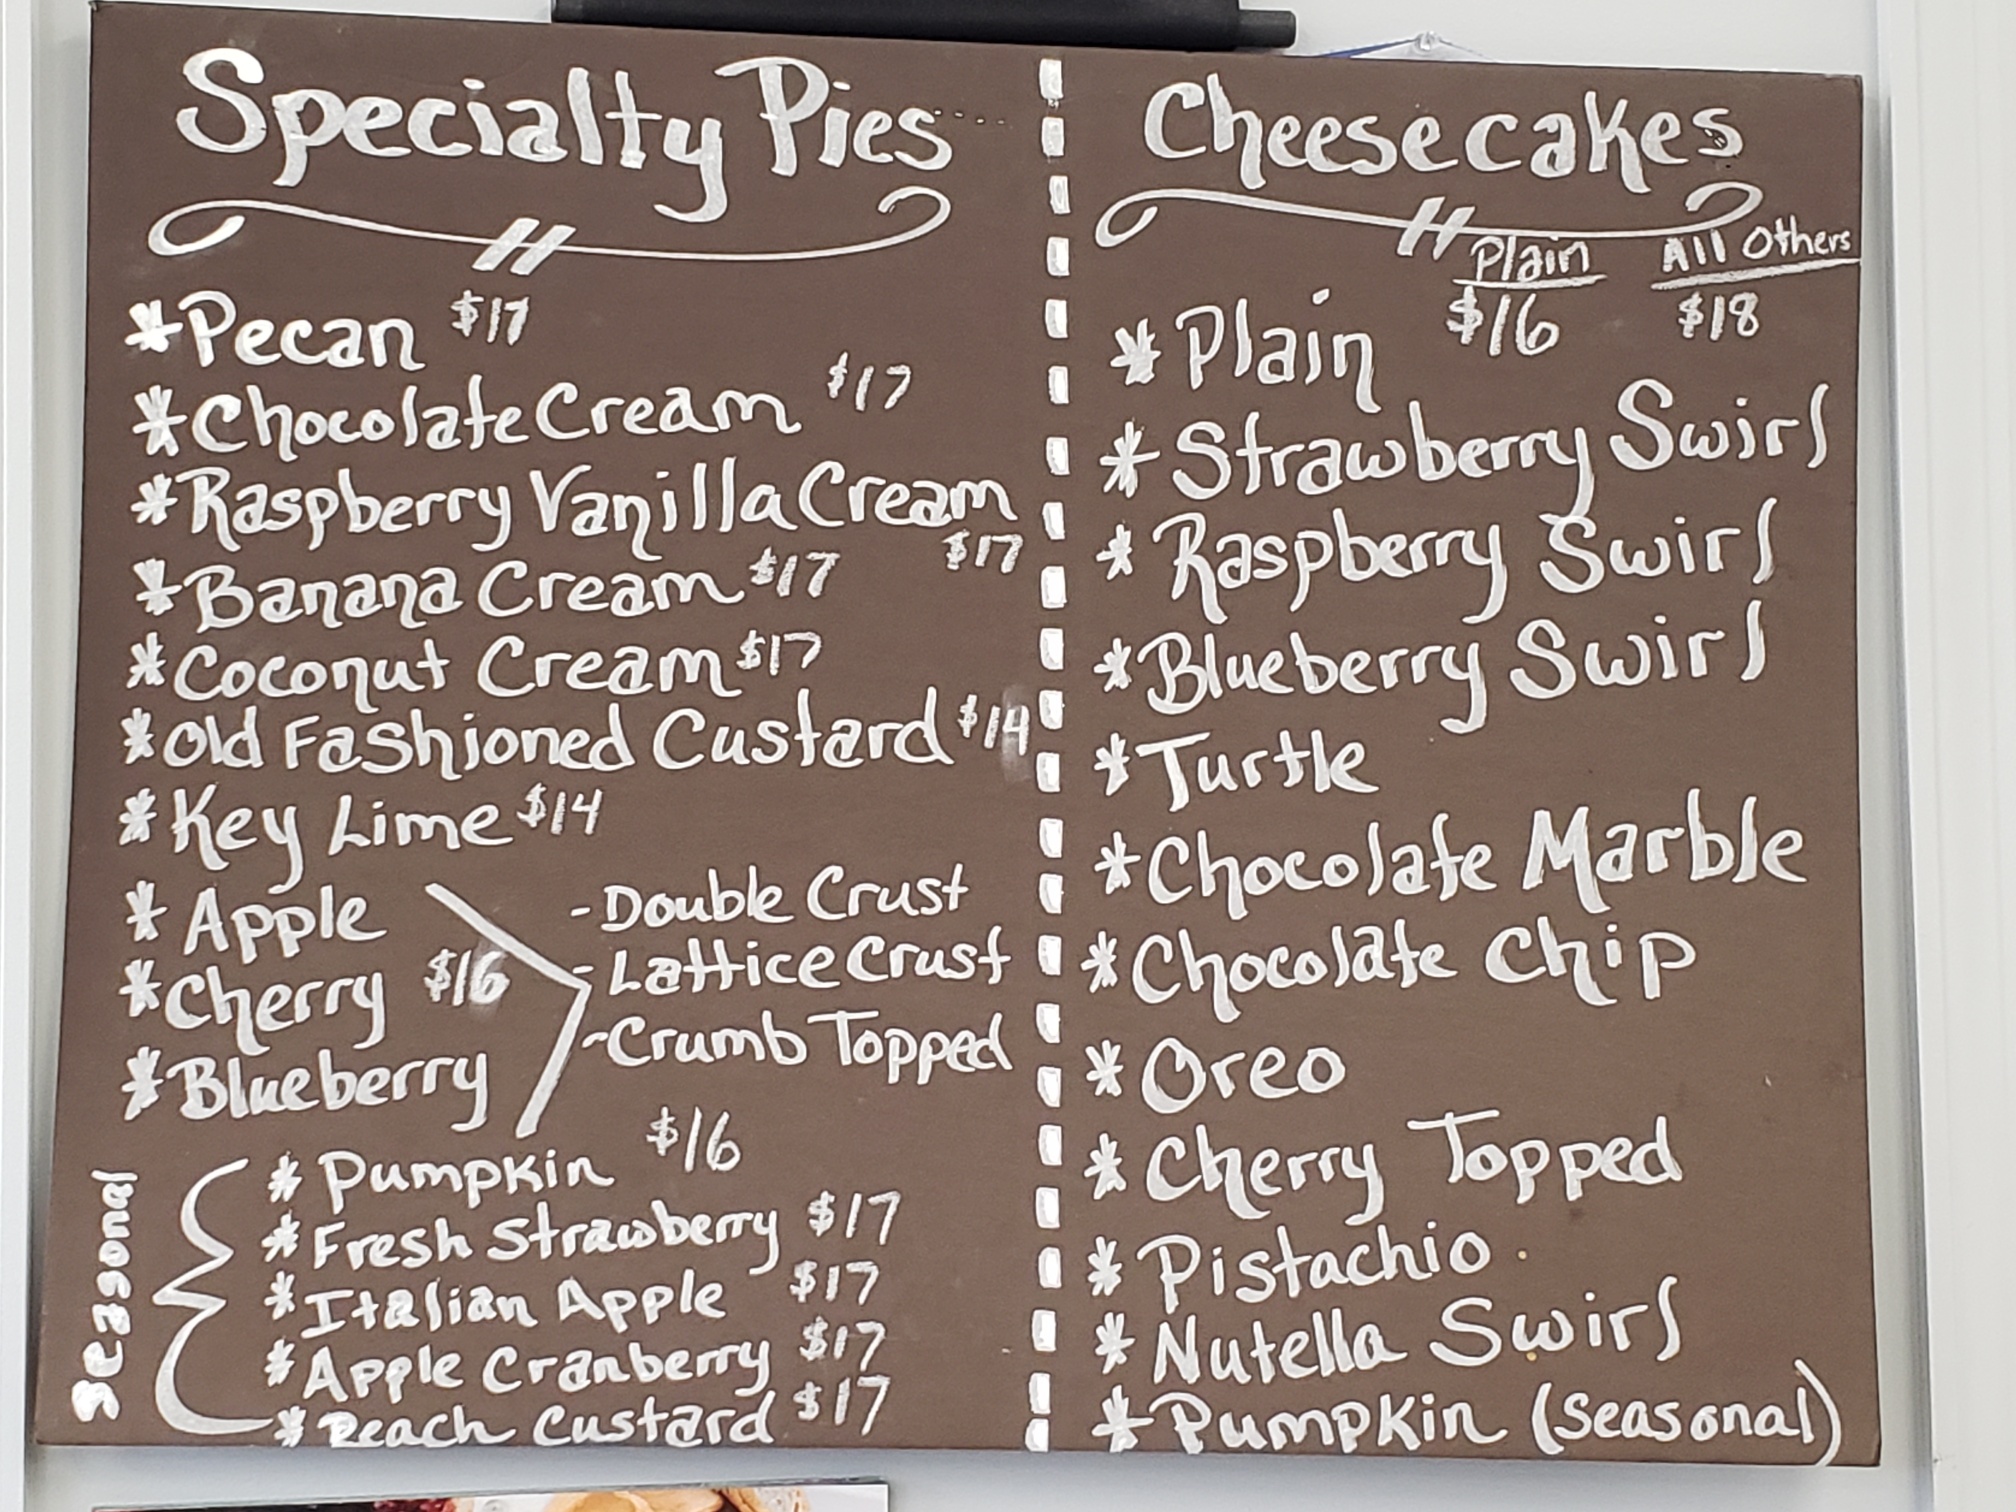 Specialty Pies
*Pecan $17
*Chocolate Cream $17
*Raspberry Vanilla Cream
$17
*Banana Cream $17
*Coconut Cream $17
*Old Fashioned Custard $14
*Key Lime $14
*Apple
*Cherry $16
*Blueberry
-Double Crust
-Lattice Crust
-Crumb Topped
Seasonal
*Pumpkin $16
*Fresh Strawberry $17
*Italian Apple $17
*Apple Cranberry $17
*Peach Custard $17
Cheesecakes
Plain All Others
$16 $18
*Plain
*Strawberry Swirl
*Raspberry Swirl
*Blueberry Swirl
*Turtle
*Chocolate Marble
*Chocolate Chip
*Oreo
*Cherry Topped
*Pistachio
*Nutella Swirl
*Pumpkin (Seasonal)